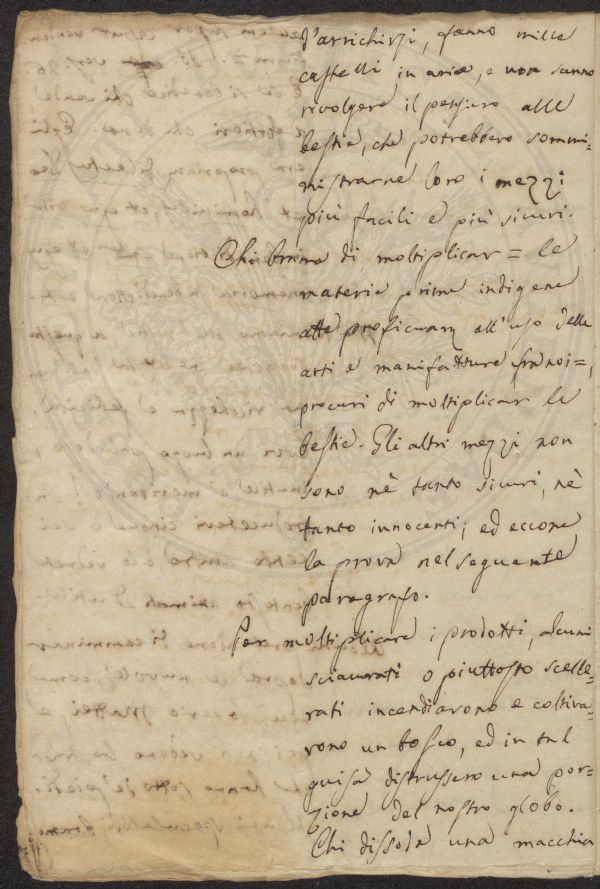 d'arrichirsi, fanno mille
castelli in aria, e non sanno
rivolgere il pensiero alle
bestie, che potrebbero sommi=
nistrarne loro i mezzi
più facili e più sicuri.
Chi brama di moltiplicar = le
materie prime indigene
atte proficuam all'uso delle
arti e manifatture fra noi =,
procuri di moltiplicar le
bestie. Gli altri mezzi non
sono nè tanto sicuri, nè
tanto innocenti; ed eccone
la prova nel seguente
paragrafo.
Per moltiplicare i prodotti, alcuni
sciaurati o piuttosto scelle=
rati incendiarono e coltiva=
rono un bosco, ed in tal
guisa distrussero una por=
zione del nostro globo.
Chi dissoda una macchia